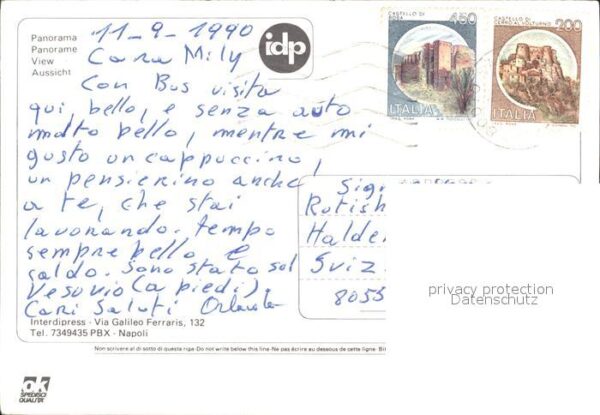 Panorama
Panorame
View
Aussicht
idp
CASTELLO DI
450
ITALIA
CASTELLO DI
CERRO AL VOLTURNO
200
ITALIA
11-9-1990
Cara Mily
Con Bus visita
qui bello, e senza auto
molto bello, mentre mi
gusto un cappuccino,
un pensierino anche
a te, che stai
lavorando. Tempo
sempre bello e
caldo. Sono stato sul
Vesuvio (a piedi).
Cari Saluti Orlando
Sig
Rutish
Halde
Sviz
8055
Interdipress - Via Galileo Ferraris, 132
Tel. 7349435 PBX - Napoli
Non scrivere al di sotto di questa riga-Do not write below this line-Ne pas écrire au dessous de cette ligne
ok
SPEDISCI
QUALITÀ
privacy protection
Datenschutz